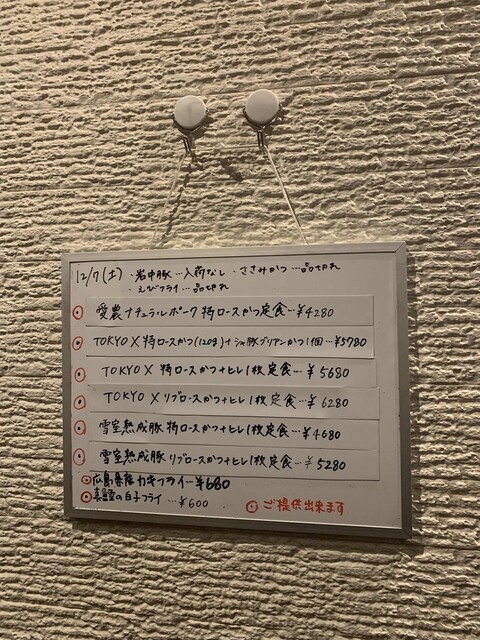 12/7(土) ・岩中豚…入荷なし ・ささみかつ…品切れ
・えびフライ…品切れ
⦿ 愛農ナチュラルポーク 特ロースかつ定食…¥4280
⦿ TOKYO X 特ロースかつ(120g)+シャ豚ブリアンかつ1個…¥5780
⦿ TOKYO X 特ロースかつ+ヒレ1枚定食…¥5680
⦿ TOKYO X リブロースかつ+ヒレ1枚定食…¥6280
⦿ 雪室熟成豚 特ロースかつ+ヒレ1枚定食…¥4680
⦿ 雪室熟成豚 リブロースかつ+ヒレ1枚定食…¥5280
⦿広島県産カキフライ…¥680
⦿真鱈の白子フライ…¥600
⦿ご提供出来ます